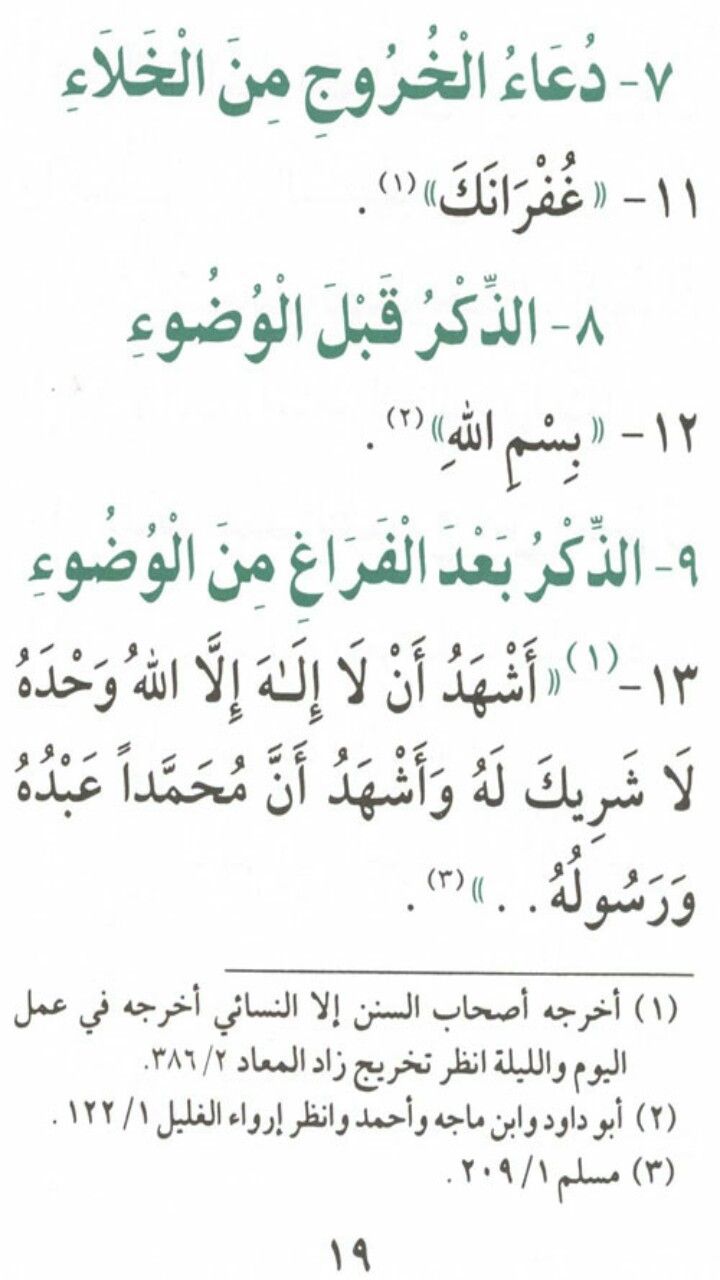 ٧- دُعَاءُ الْخُرُوجِ مِنَ الْخَلَاءِ
١١- «غُفْرَانَكَ»(١).
٨- الذِّكْرُ قَبْلَ الْوُضُوءِ
١٢- «بِسْمِ اللهِ»(٢).
٩- الذِّكْرُ بَعْدَ الْفَرَاغِ مِنَ الْوُضُوءِ
١٣-(١)«أَشْهَدُ أَنْ لَا إِلَـٰهَ إِلَّا اللهُ وَحْدَهُ
لَا شَرِيكَ لَهُ وَأَشْهَدُ أَنَّ مُحَمَّداً عَبْدُهُ
وَرَسُولُهُ . . »(٣).
(١) أخرجه أصحاب السنن إلا النسائي أخرجه في عمل
اليوم والليلة انظر تخريج زاد المعاد ٢/ ٣٨٦.
(٢) أبو داود وابن ماجه وأحمد وانظر إرواء الغليل ١/ ١٢٢ .
(٣) مسلم ١/ ٢٠٩ .
١٩